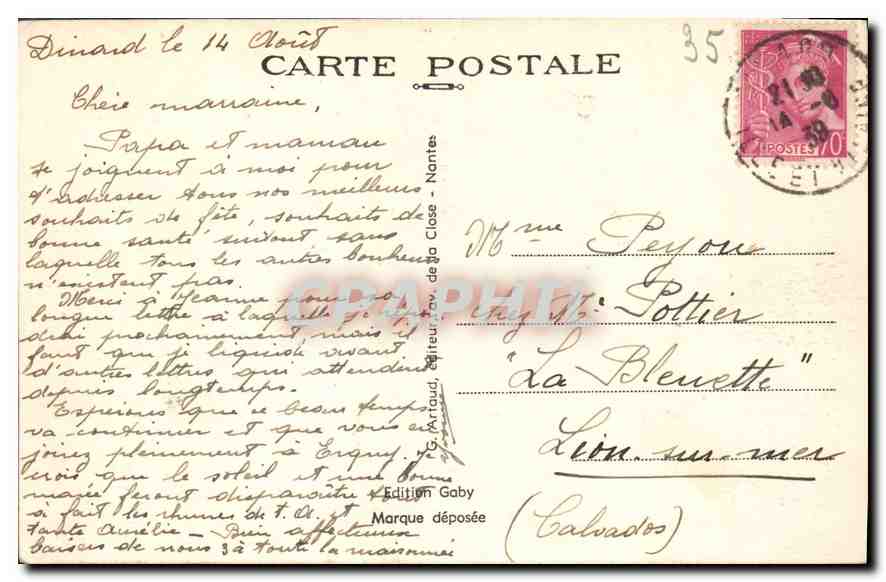 Dinard le 14 Août
35
CARTE POSTALE
Chère marraine,
Papa et maman
se joignent à moi pour
t'adresser tous nos meilleurs
souhaits de fête, souhaits de
bonne santé surtout sans
laquelle tous les autres bonheurs
n'existent pas.
Merci à Jeanne pour sa
longue lettre à laquelle je répon
drai prochainement, mais il
faut que je liquide avant
d'autres lettres qui attendent
depuis longtemps.
Espérons que ce beau temps
va continuer et que vous en
jouirez pleinement à Je
crois que le soleil et une bonne
marée feront disparaître tout
à fait les rhumes de t. A. et
tante Aurélie - Bien affectueux
baisers de nous 3 à toute la maisonnée
Yvonne
G. Artaud, éditeur, av. de la Close - Nantes
Edition Gaby
Marque déposée
21 30
14 - 8
39
ILLE-ET-VILAINE
POSTES
70
Mme Peyou
chez Mr Pottier
"La Bleuette"
Lion-sur-mer
(Calvados)
CPAPHIL